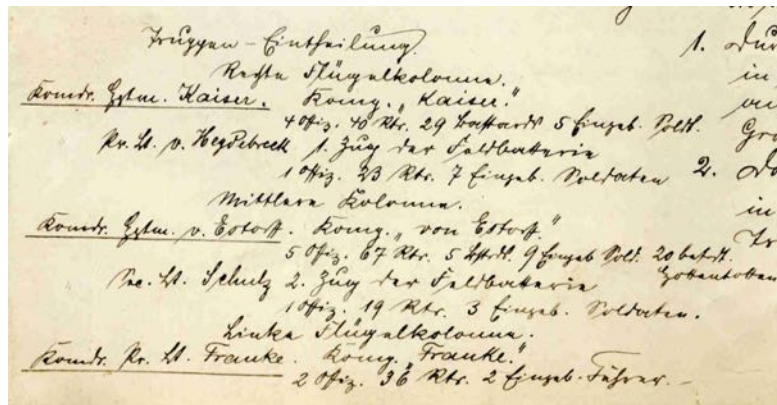 Truppen-Eintheilung.
Rechte Flügelkolonne.
Komdr. Hptm. Kaiser. Komp. „Kaiser."
4 Offiz. 40 Rtr. 29 Bastards 5 Eingeb. Soldt.
Pr. Lt. v. Heydebreck 1. Zug der Feldbatterie
1 Offiz. 23 Rtr. 7 Eingeb. Soldaten
Mittlere Kolonne.
Komdr. Hptm. v. Estorff. Komp. „von Estorff"
5 Offiz. 67 Rtr. 5 Bstrdt. 9 Eingeb Sold. 20 Hottentotten
Sec. Lt. Schultz 2. Zug der Feldbatterie
1 Offiz. 19 Rtr. 3 Eingeb. Soldaten.
Linke Flügelkolonne.
Komdr. Pr. Lt. Franke. Komp. „Franke."
2 Offiz. 36 Rtr. 2 Eingeb. Führer. –
1.
in
2.
in